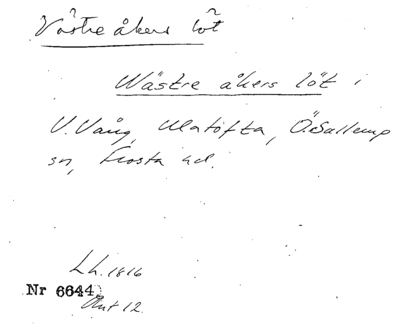 Västre åkers löt
Wästre åkers löt i
V. Vång, Ulatofta, Ö. Sallerup
sn, Frosta hd.
Lh. 1816
Nr 6644
Akt 12.